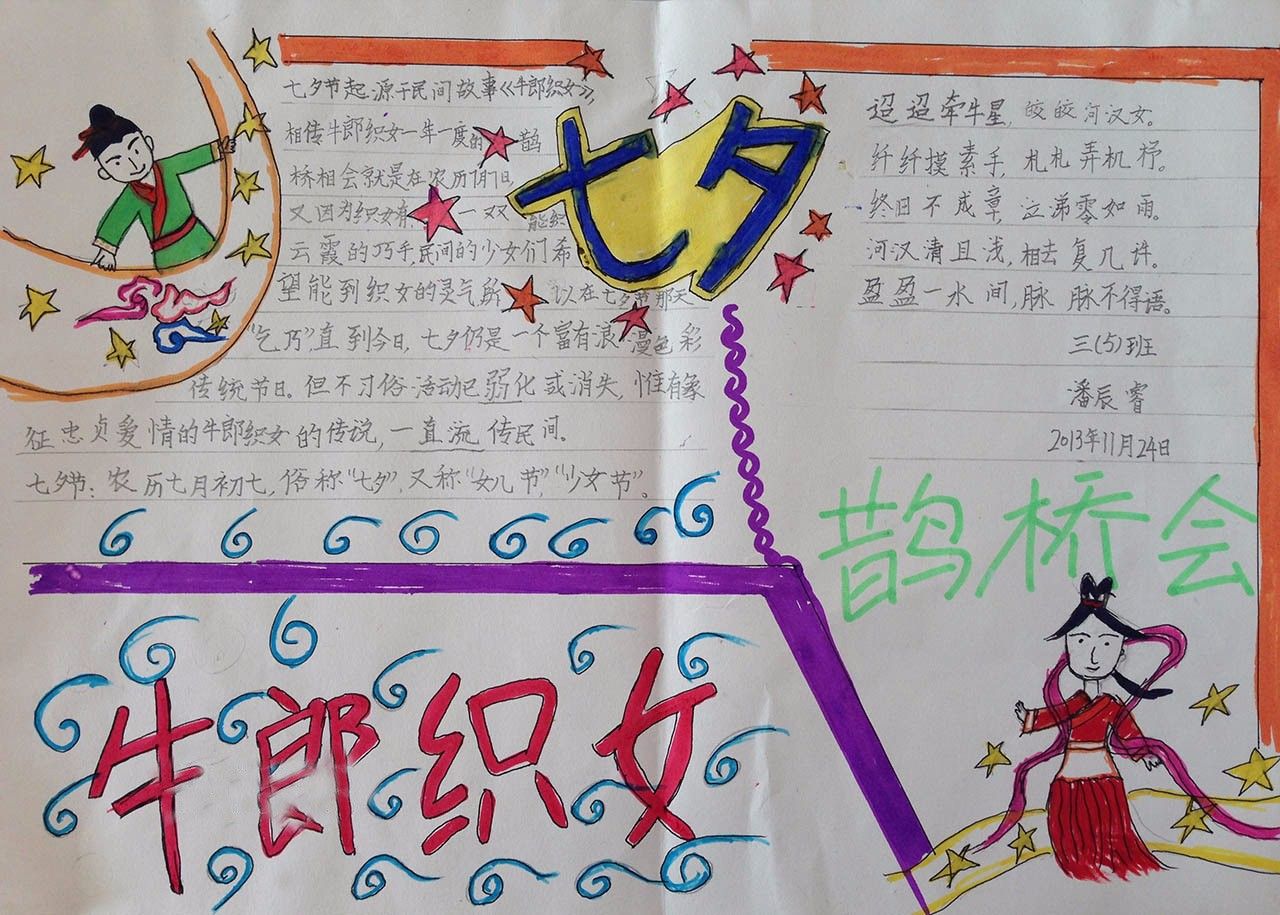 七夕节起源于民间故事《牛郎织女》,
相传牛郎织女一年一度的鹊
桥相会就是在农历7月7日
又因为织女有一双能织
云霞的巧手,民间的少女们希
望能到织女的灵气所以在七夕节那天
"乞巧"直到今日,七夕仍是一个富有浪漫色彩
传统节日。但不习俗活动已弱化或消失,惟有象
征忠贞爱情的牛郎织女的传说,一直流传民间。
七夕节:农历七月初七,俗称"七夕",又称"女儿节""少女节"。
七夕
迢迢牵牛星,皎皎河汉女。
纤纤摸素手,札札弄机杼。
终日不成章,泣涕零如雨。
河汉清且浅,相去复几许。
盈盈一水间,脉脉不得语。
三(5)班
潘辰睿
2013年11月24日
鹊桥会
牛郎织女